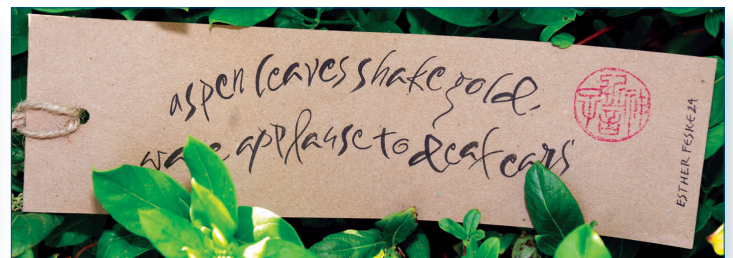 aspen leaves shake gold,
wave applause to deaf ears
ESTHER FESKE 24